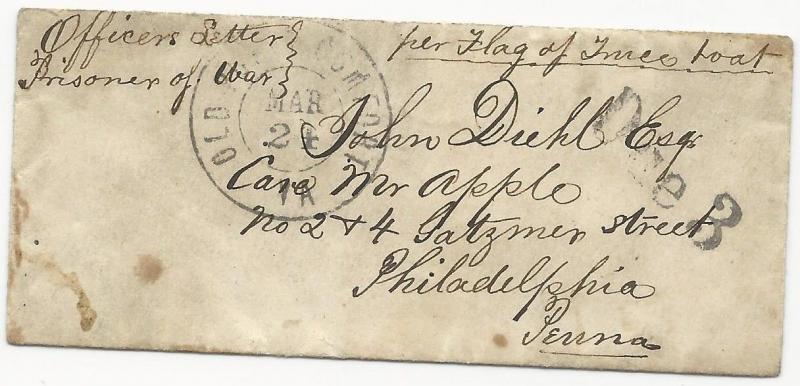 Officers Letter
Prisoner of War
per Flag of Truce boat
OLD POINT COMFORT
MAR
24
VA
Due 3
John Diehl Esqr
Care Mr Apple
No 2 & 4 Gatzmer street
Philadelphia
Penna